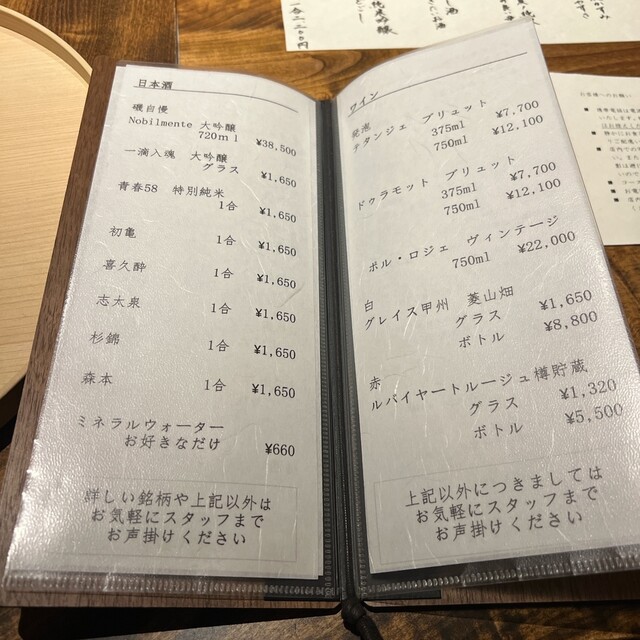 日本酒
磯自慢
Nobilmente 大吟醸
720ml ¥38,500
一滴入魂 大吟醸
グラス ¥1,650
青春58 特別純米
1合 ¥1,650
初亀 1合 ¥1,650
喜久酔 1合 ¥1,650
志太泉 1合 ¥1,650
杉錦 1合 ¥1,650
森本 1合 ¥1,650
ミネラルウォーター
お好きなだけ ¥660
詳しい銘柄や上記以外は
お気軽にスタッフまで
お声掛けください
ワイン
発泡
タタンジェ ブリュット
375ml ¥7,700
750ml ¥12,100
ドゥラモット ブリュット
375ml ¥7,700
750ml ¥12,100
ポル・ロジェ ヴィンテージ
750ml ¥22,000
白
グレイス甲州 菱山畑
グラス ¥1,650
ボトル ¥8,800
赤
ルバイヤートルージュ樽貯蔵
グラス ¥1,320
ボトル ¥5,500
上記以外につきましては
お気軽にスタッフまで
お声掛けください
お客様へのお願い